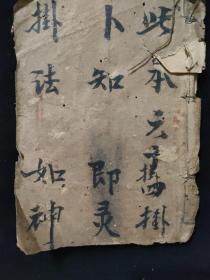 此本六爻舊掛
卜知即灵
掛法如神